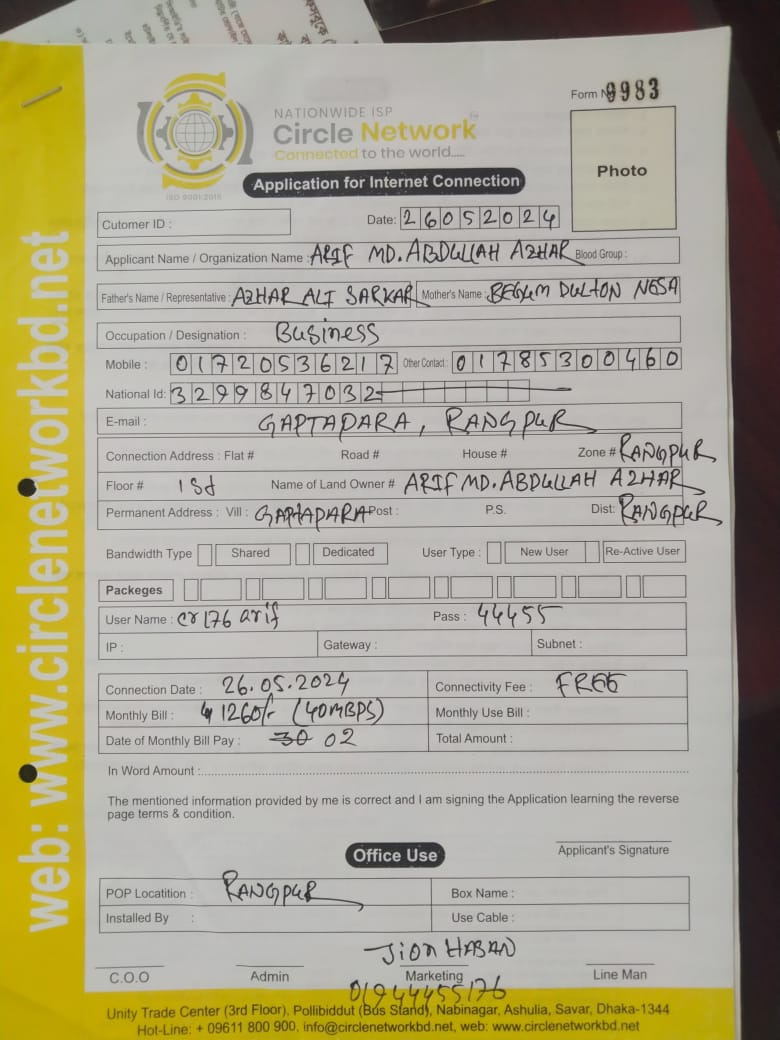 Form № 9983
NATIONWIDE ISP
Circle Network
Connected to the world.....
ISO 9001:2015
Photo
Application for Internet Connection
Cutomer ID :
Date: 26052024
Applicant Name / Organization Name : ARIF MD. ABDULLAH AZHAR Blood Group :
Father's Name / Representative : AZHAR ALI SARKAR Mother's Name : BEGUM DULTON NESA
Occupation / Designation : Business
Mobile : 01720536217 Other Contact : 01785300460
National Id: 3299847032
E-mail : GAPTAPARA, RANGPUR
Connection Address : Flat # Road # House # Zone # RANGPUR
Floor # 1st Name of Land Owner # ARIF MD. ABDULLAH AZHAR
Permanent Address : Vill : GAPTAPARA Post : P.S. Dist: RANGPUR
Bandwidth Type Shared Dedicated User Type : New User Re-Active User
Packeges
User Name : cr176 arif Pass : 44455
IP : Gateway : Subnet :
Connection Date : 26.05.2024 Connectivity Fee : FREE
Monthly Bill : 1260/- (40MBPS) Monthly Use Bill :
Date of Monthly Bill Pay : 30 02 Total Amount :
In Word Amount :
The mentioned information provided by me is correct and I am signing the Application learning the reverse
page terms & condition.
Applicant's Signature
Office Use
POP Locatition : RANGPUR Box Name :
Installed By : Use Cable :
Jion HASAN
C.O.O Admin Marketing Line Man
01944455176
Unity Trade Center (3rd Floor), Pollibiddut (Bus Stand), Nabinagar, Ashulia, Savar, Dhaka-1344
Hot-Line: + 09611 800 900, info@circlenetworkbd.net, web: www.circlenetworkbd.net
web: www.circlenetworkbd.net